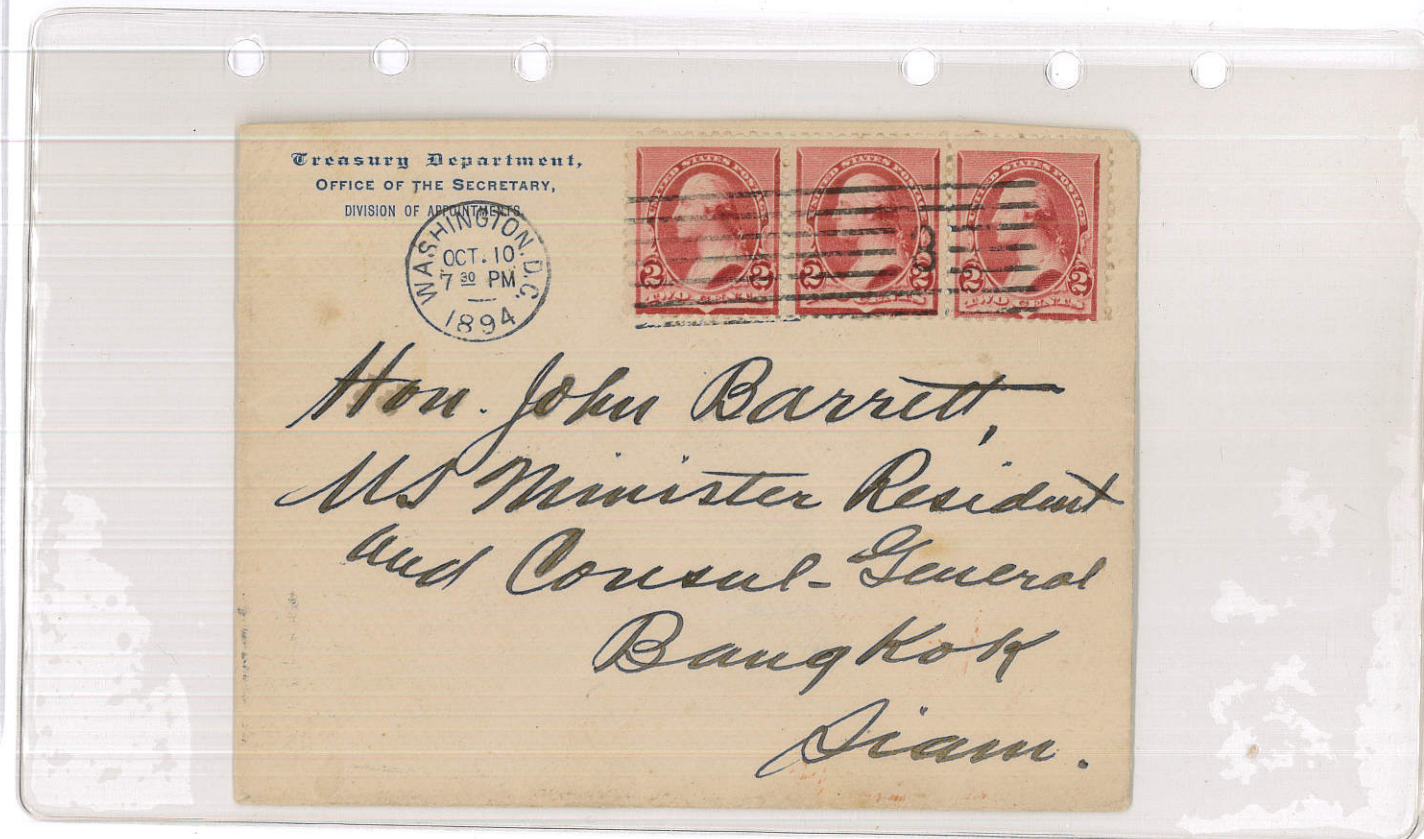 Treasury Department,
OFFICE OF THE SECRETARY,
DIVISION OF APPOINTMENTS.
WASHINGTON, D.C.
OCT. 10
7 30 PM
1894
UNITED STATES POSTAGE
2 2
TWO CENTS
UNITED STATES POSTAGE
2 2
TWO CENTS
UNITED STATES POSTAGE
2 2
TWO CENTS
3
Hon. John Barrett,
US Minister Resident
and Consul-General
Bangkok
Siam.